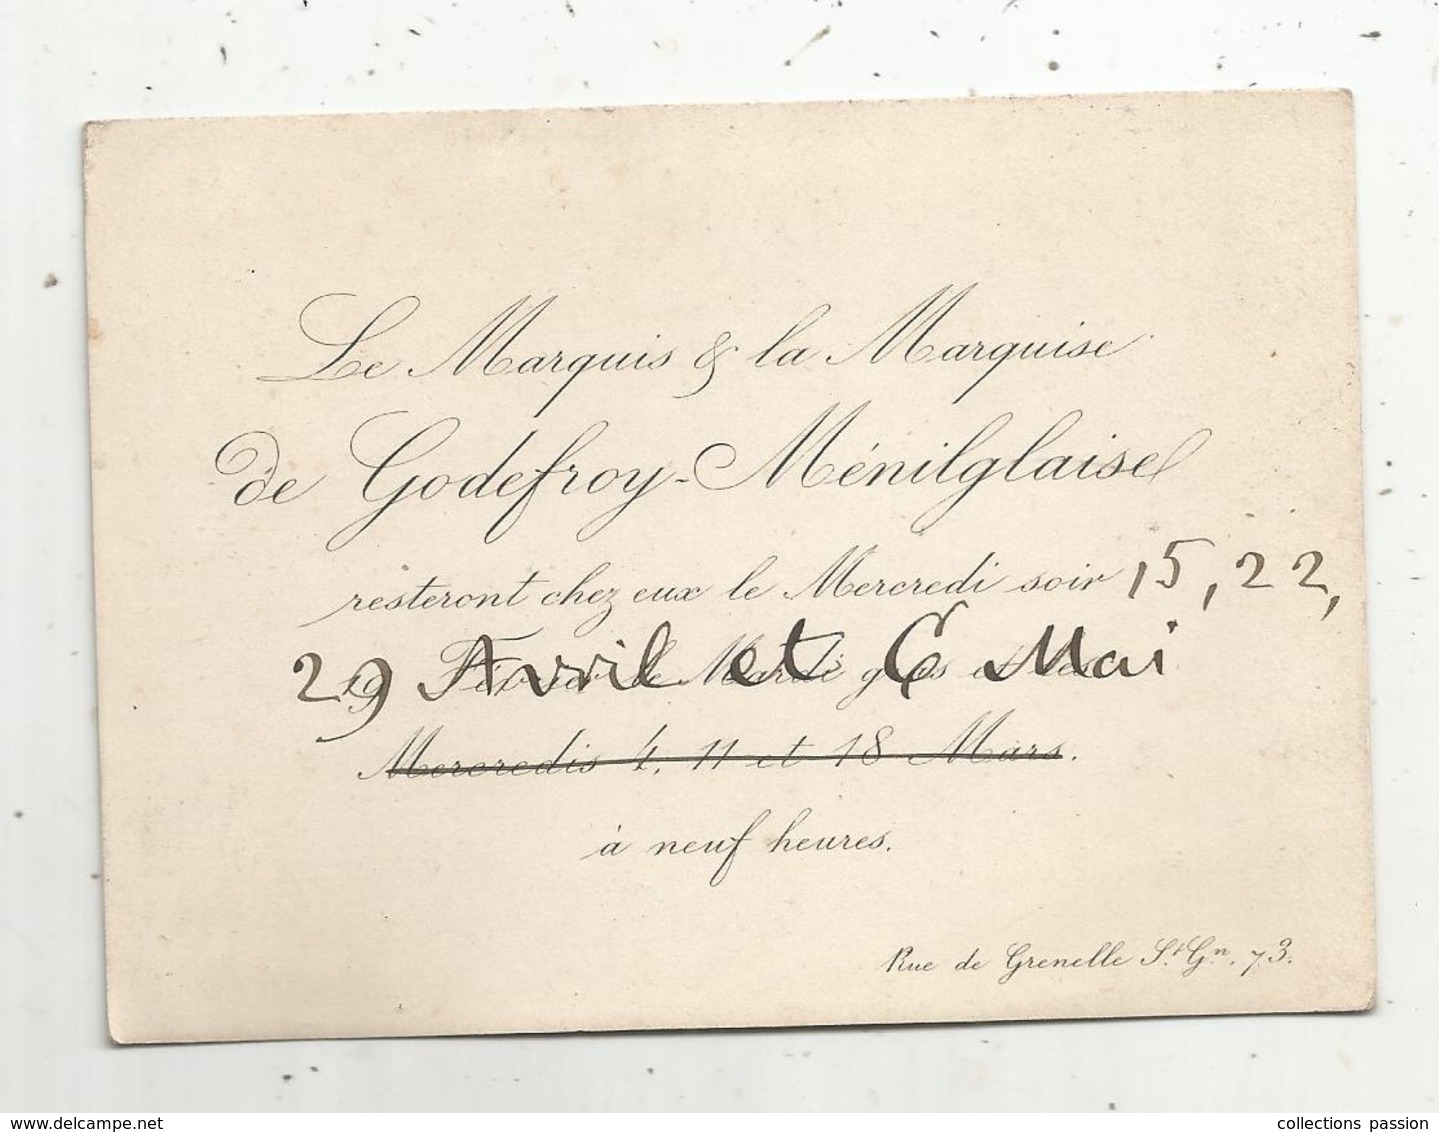 Le Marquis & la Marquise
de Godefroy-Ménilglaise
resteront chez eux le Mercredi soir 15, 22,
29 Avril et 6 Mai
Mercredis 4, 11 et 18 Mars.
à neuf heures.
Rue de Grenelle St. Gn. 73.
collections passion